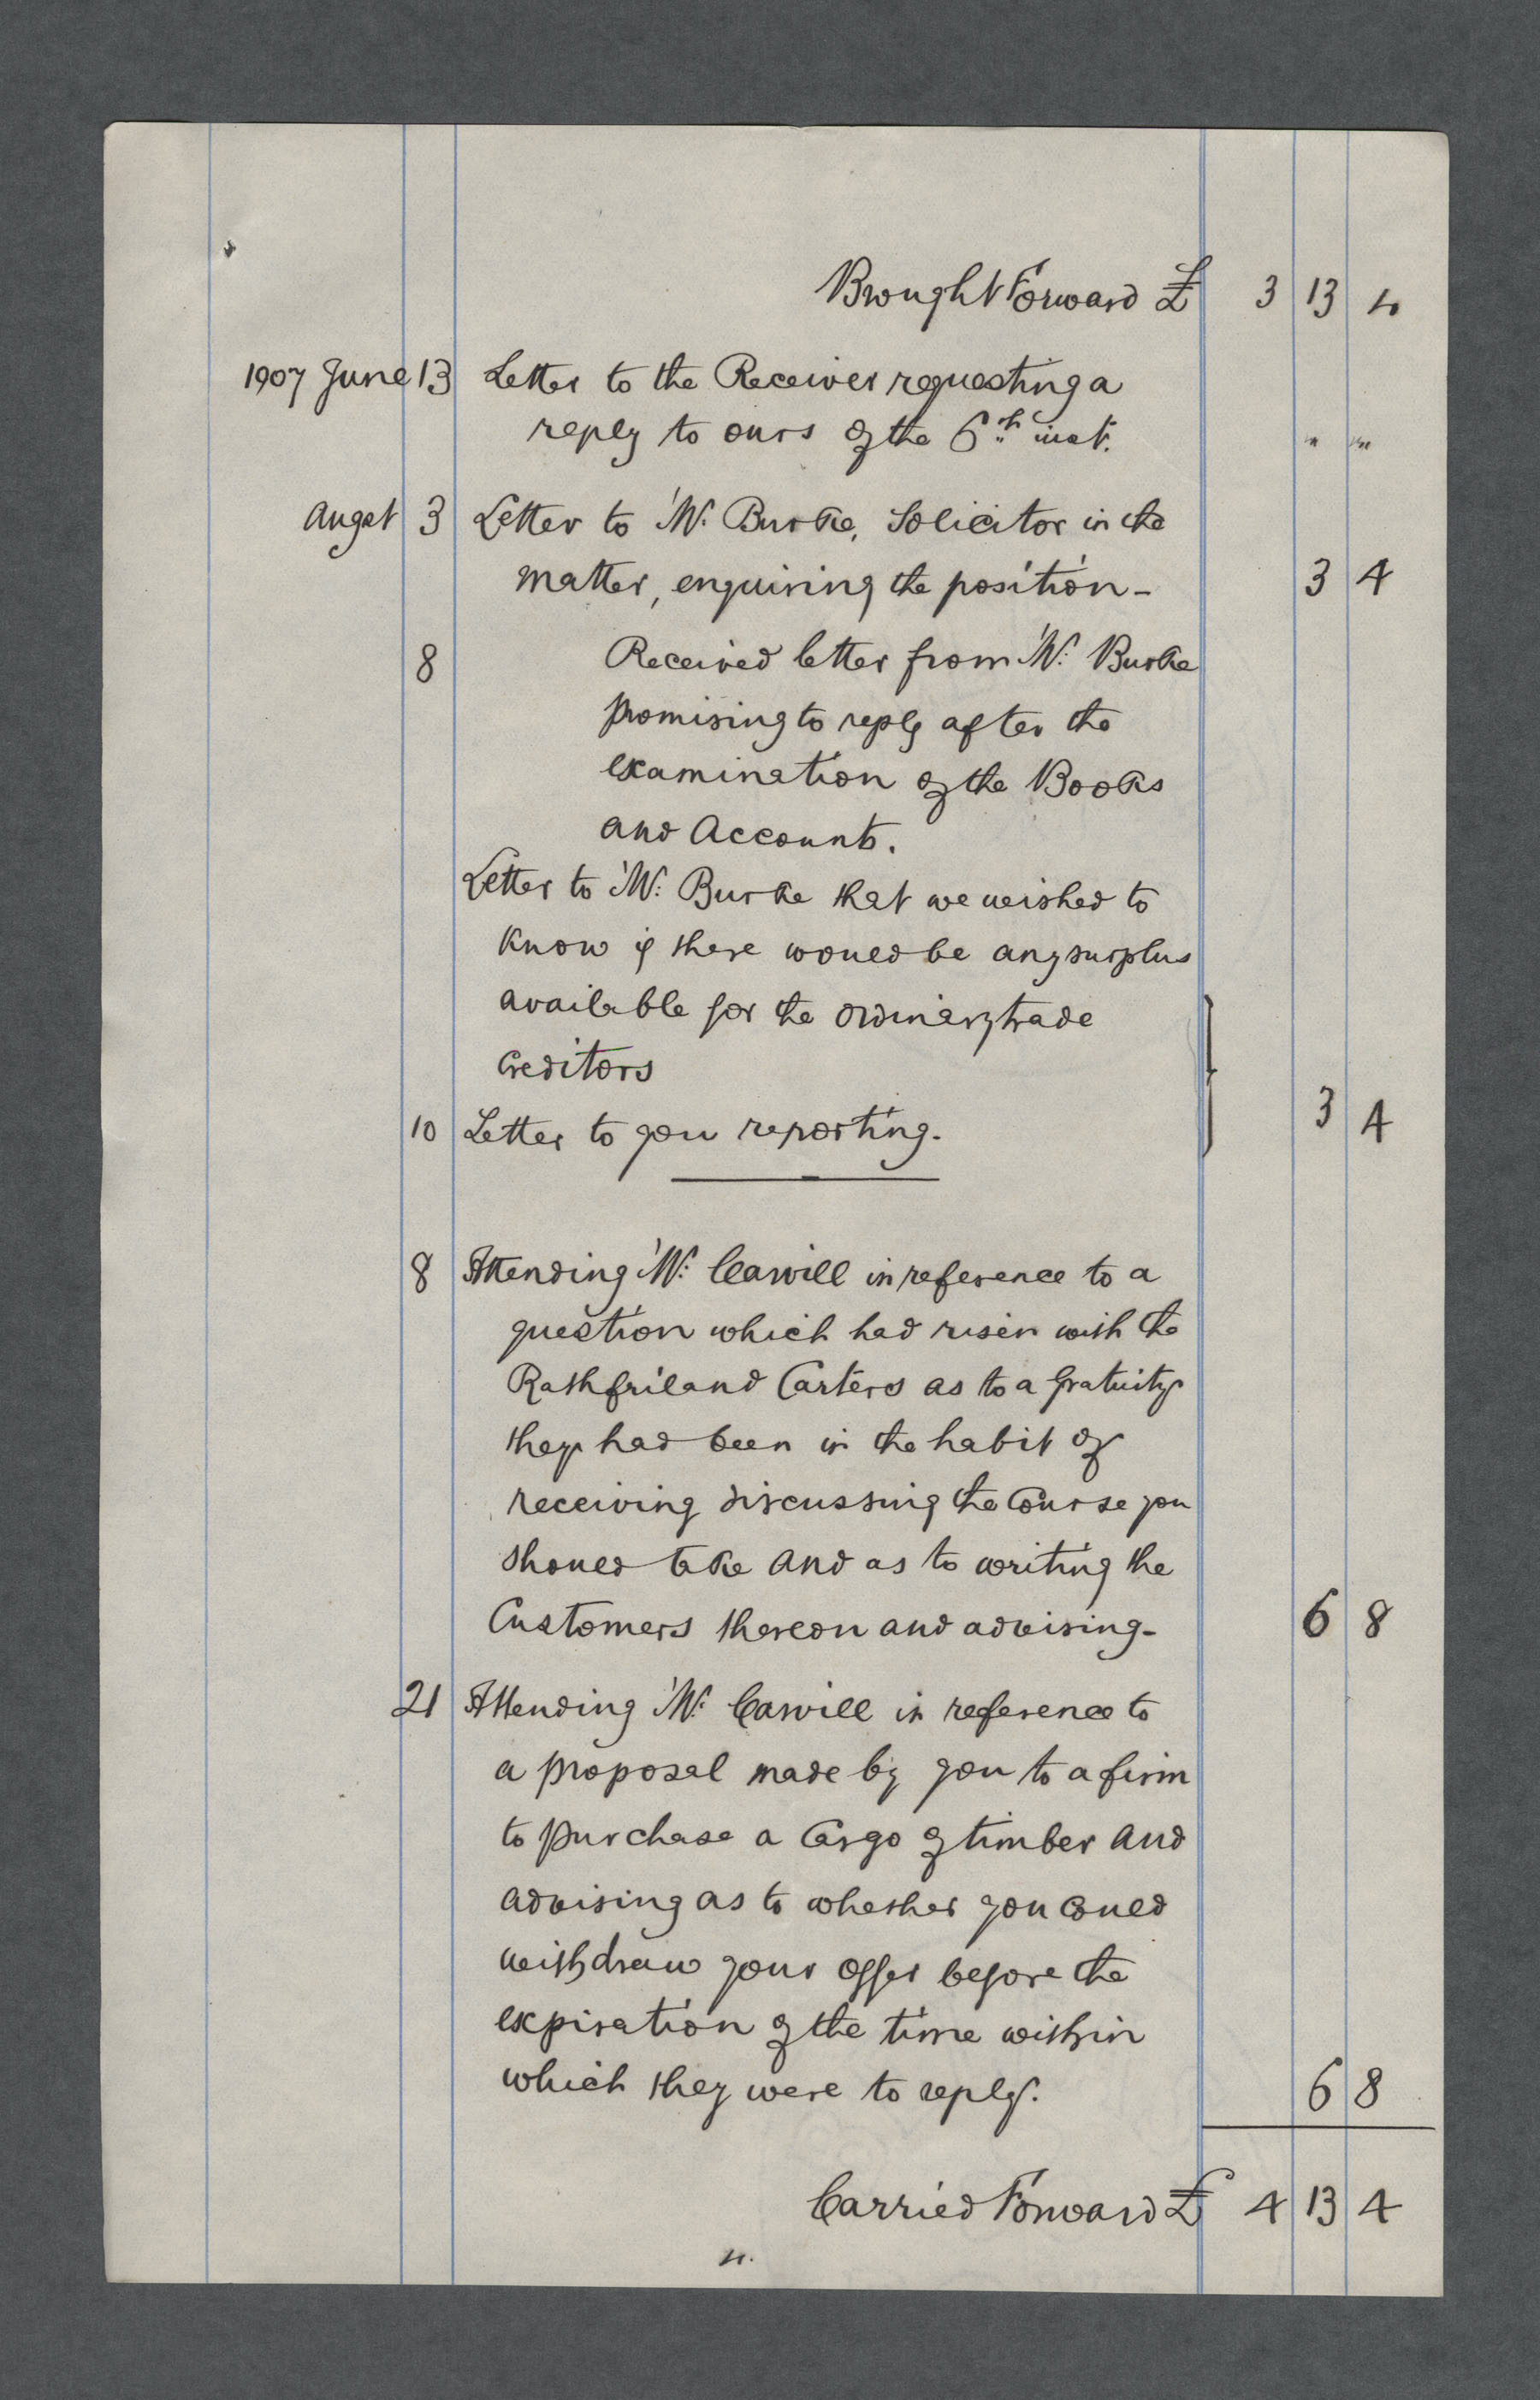 Brought Forward £ 3 13 4
1907 June 13 Letter to the Receiver requesting a
reply to ours of the 6th inst. " "
Augst 3 Letter to Mr. Burke, Solicitor in the
matter, enquiring the position - 3 4
8 Received letter from Mr. Burke
promising to reply after the
examination of the Books
and Accounts.
Letter to Mr. Burke that we wished to
know if there would be any surplus
available for the ordinary trade
Creditors
10 Letter to you reporting. 3 4
8 Attending Mr. Carvill in reference to a
question which had risen with the
Rathfriland Carters as to a Gratuity
they had been in the habit of
receiving discussing the Course you
should take and as to writing the
Customers thereon and advising - 6 8
21 Attending Mr. Carvill in reference to
a proposal made by you to a firm
to purchase a Cargo of timber and
advising as to whether you could
withdraw your offer before the
expiration of the time within
which they were to reply. 6 8
Carried Forward £ 4 13 4
4.